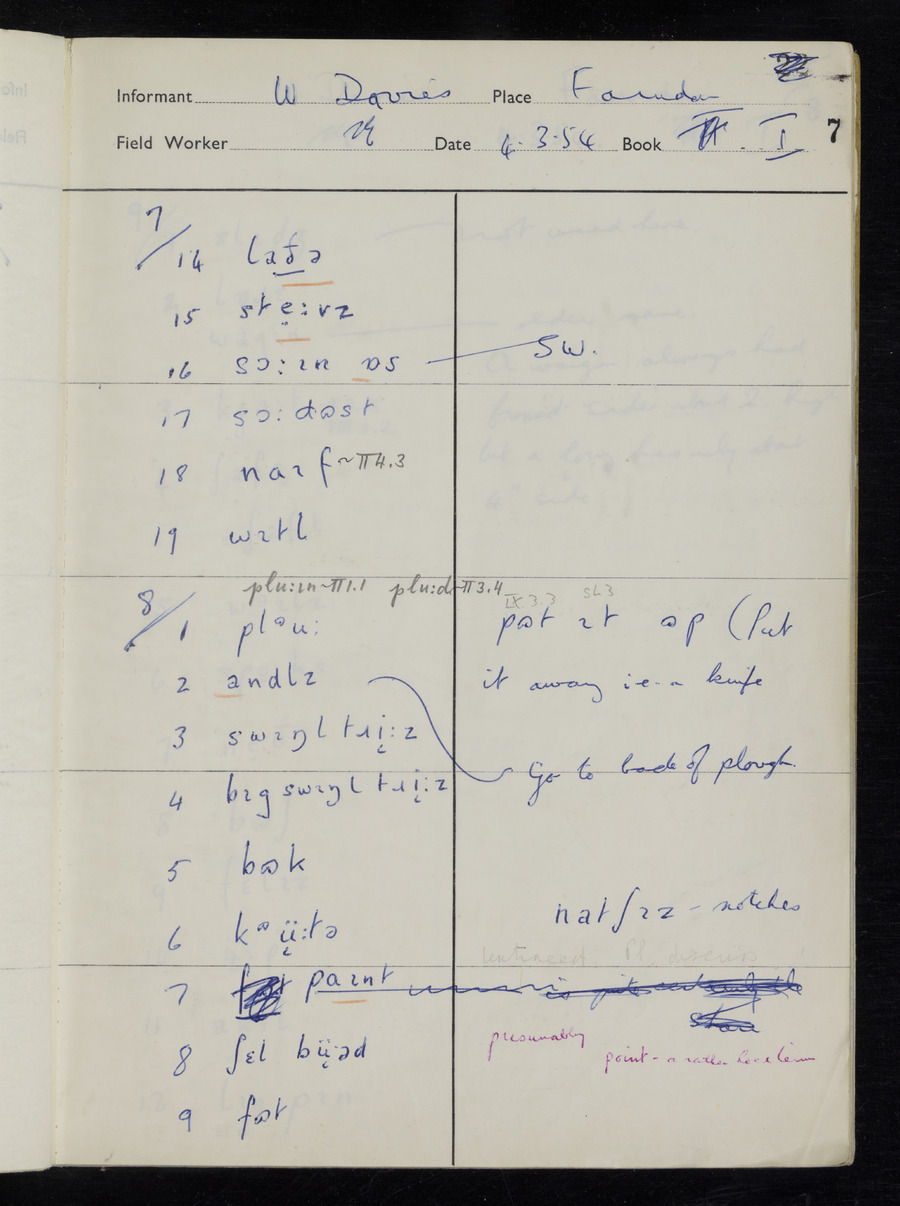 Informant W Davies Place Farndon
Field Worker Date 4.3.54 Book I 7
7/14 laðə
15 ste̞:vz
16 sɔ:ɪn ɒs — SW.
17 sɔ:dɷst
18 naɪf ~ II4.3
19 wɪtl
plu:ɪn ~ II1.1 plu:d ~ II3.4
IX.3.3
8/1 plᵊu: pɷt ɪt ɷp (Put
2 andlz it away i.e. a knife
3 swɪŋl tɹi̞:z
Go to back of plough.
4 bɪg swɪŋl tɹi̞:z
5 bɷk
6 kᵊü̞:tə natʃɪz - notches
7 paɪnt
presumably
point - a rather
8 ʃɛl bü̞əd
9 fɷt